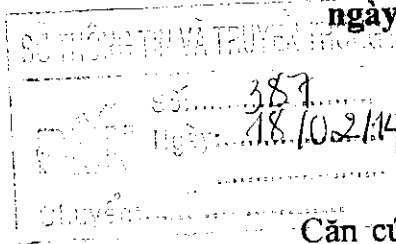 ngày
SỞ THÔNG TIN VÀ TRUYỀN THÔNG
Số: 387
Ngày: 18/02/14
Chuyển:
Căn cứ